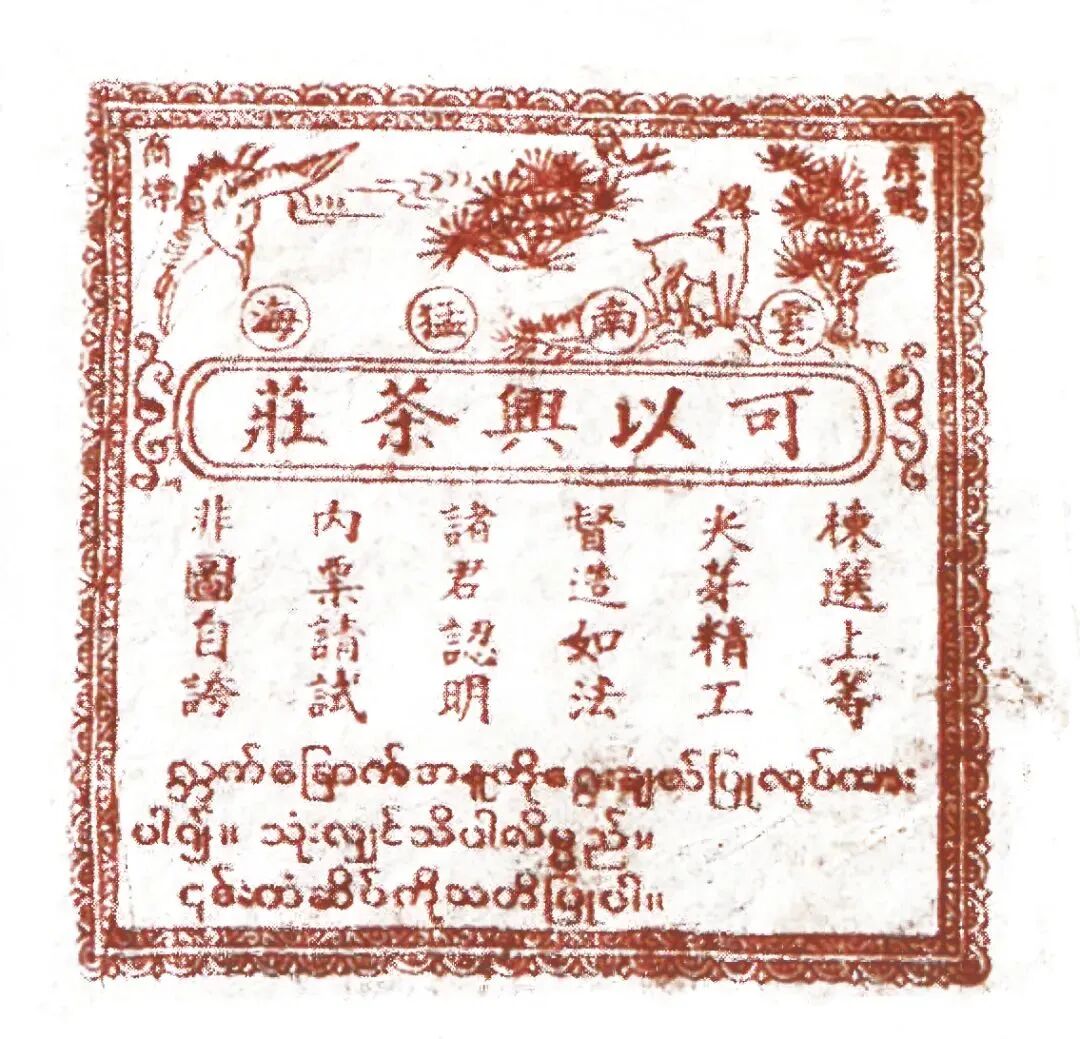 雲南猛海
可以興茶莊
楝選上等
尖芽精工
督造如法
諸君認明
內票請試
非圖自誇
လ္ဘက်ခြောက်အနုကိုရွေးချယ်ပြုလုပ်ထား
ပါ၍။ သုံးလျှင်သိပါလိမ့်မည်။
၎င်းတံဆိပ်ကိုသတိပြုပါ။